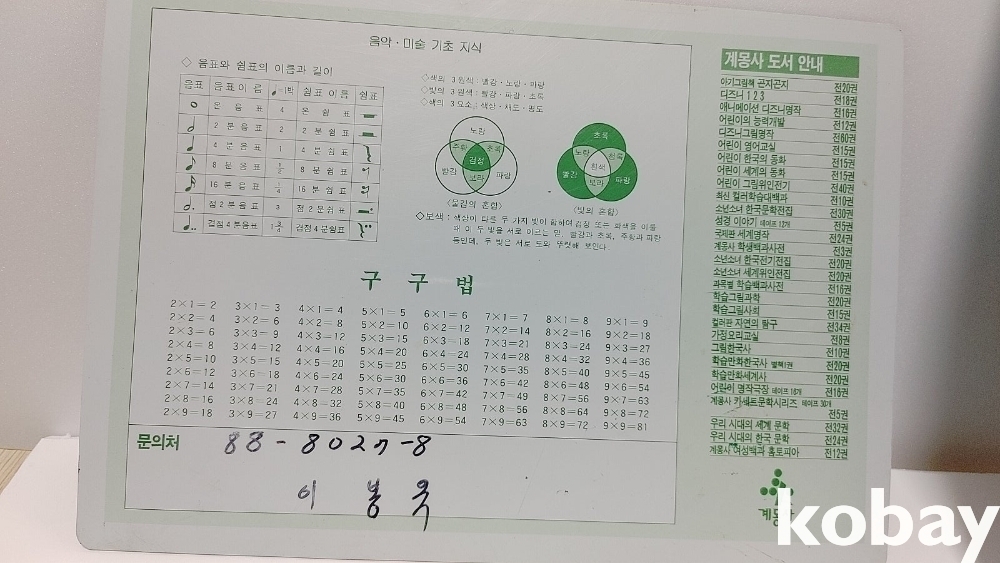 음악·미술 기초 지식
◇ 음표와 쉼표의 이름과 길이
음표 음표이름 ♩=1박 쉼표이름 쉼표
온 음 표 4 온 쉼 표
2 분 음 표 2 2 분 쉼 표
4 분 음 표 1 4 분 쉼 표
8 분 음 표 1/2 8 분 쉼 표
16 분 음 표 1/4 16 분 쉼 표
점 2 분 음 표 3 점 2 분 쉼 표
겹점 4 분음표 1 3/4 겹점 4 분쉼표
◇색의 3 원색 : 빨강·노랑·파랑
◇빛의 3 원색 : 빨강·파랑·초록
◇색의 3 요소 : 색상·채도·명도
노랑
주황 초록
검정
빨강 보라 파랑
〈물감의 혼합〉
초록
노랑 청록
흰색
빨강 보라 파랑
〈빛의 혼합〉
◇보색 : 색상이 다른 두 가지 빛이 합하여 검정 또는 회색을 이룰
때 이 두 빛을 서로 이르는 말. 빨강과 초록, 주황과 파란
등인데, 두 빛은 서로 도와 뚜렷해 보인다.
구 구 법
2×1= 2 3×1= 3 4×1= 4 5×1= 5 6×1= 6 7×1= 7 8×1= 8 9×1= 9
2×2= 4 3×2= 6 4×2= 8 5×2=10 6×2=12 7×2=14 8×2=16 9×2=18
2×3= 6 3×3= 9 4×3=12 5×3=15 6×3=18 7×3=21 8×3=24 9×3=27
2×4= 8 3×4=12 4×4=16 5×4=20 6×4=24 7×4=28 8×4=32 9×4=36
2×5=10 3×5=15 4×5=20 5×5=25 6×5=30 7×5=35 8×5=40 9×5=45
2×6=12 3×6=18 4×6=24 5×6=30 6×6=36 7×6=42 8×6=48 9×6=54
2×7=14 3×7=21 4×7=28 5×7=35 6×7=42 7×7=49 8×7=56 9×7=63
2×8=16 3×8=24 4×8=32 5×8=40 6×8=48 7×8=56 8×8=64 9×8=72
2×9=18 3×9=27 4×9=36 5×9=45 6×9=54 7×9=63 8×9=72 9×9=81
문의처 88-8027-8
이 봉 옥
계몽사 도서 안내
아기그림책 곤지곤지 전20권
디즈니 1 2 3 전18권
애니메이션 디즈니명작 전16권
어린이의 능력개발 전12권
디즈니그림명작 전60권
어린이 영어교실 전15권
어린이 한국의 동화 전15권
어린이 세계의 동화 전15권
어린이 그림위인전기 전40권
최신 컬러학습대백과 전10권
소년소녀 한국문학전집 전30권
성경 이야기 테이프 12개 전5권
국제판 세계명작 전24권
계몽사 학생백과사전 전3권
소년소녀 한국전기전집 전20권
소년소녀 세계위인전집 전20권
과목별 학습백과사전 전16권
학습그림과학 전20권
학습그림사회 전15권
컬러판 자연의 탐구 전34권
가정요리교실 전8권
그림한국사 전10권
학습만화한국사 별책1권 전20권
학습만화세계사 전20권
어린이 명작극장 테이프 16개 전16권
계몽사 카세트문학시리즈 테이프 30개
전5권
우리 시대의 세계 문학 전32권
우리 시대의 한국 문학 전24권
계몽사 여성백과 홈토피아 전12권
계몽사
kobay